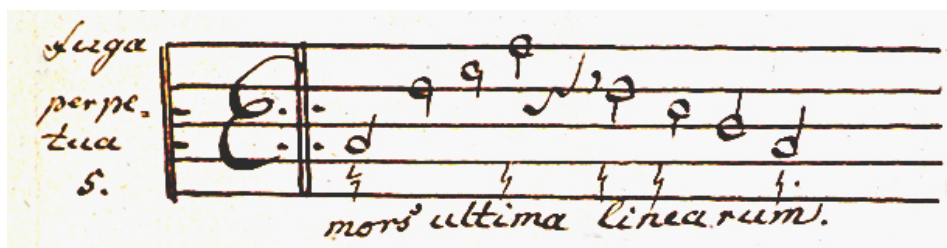 fuga
perpe-
tua
5.
mors ultima linearum.